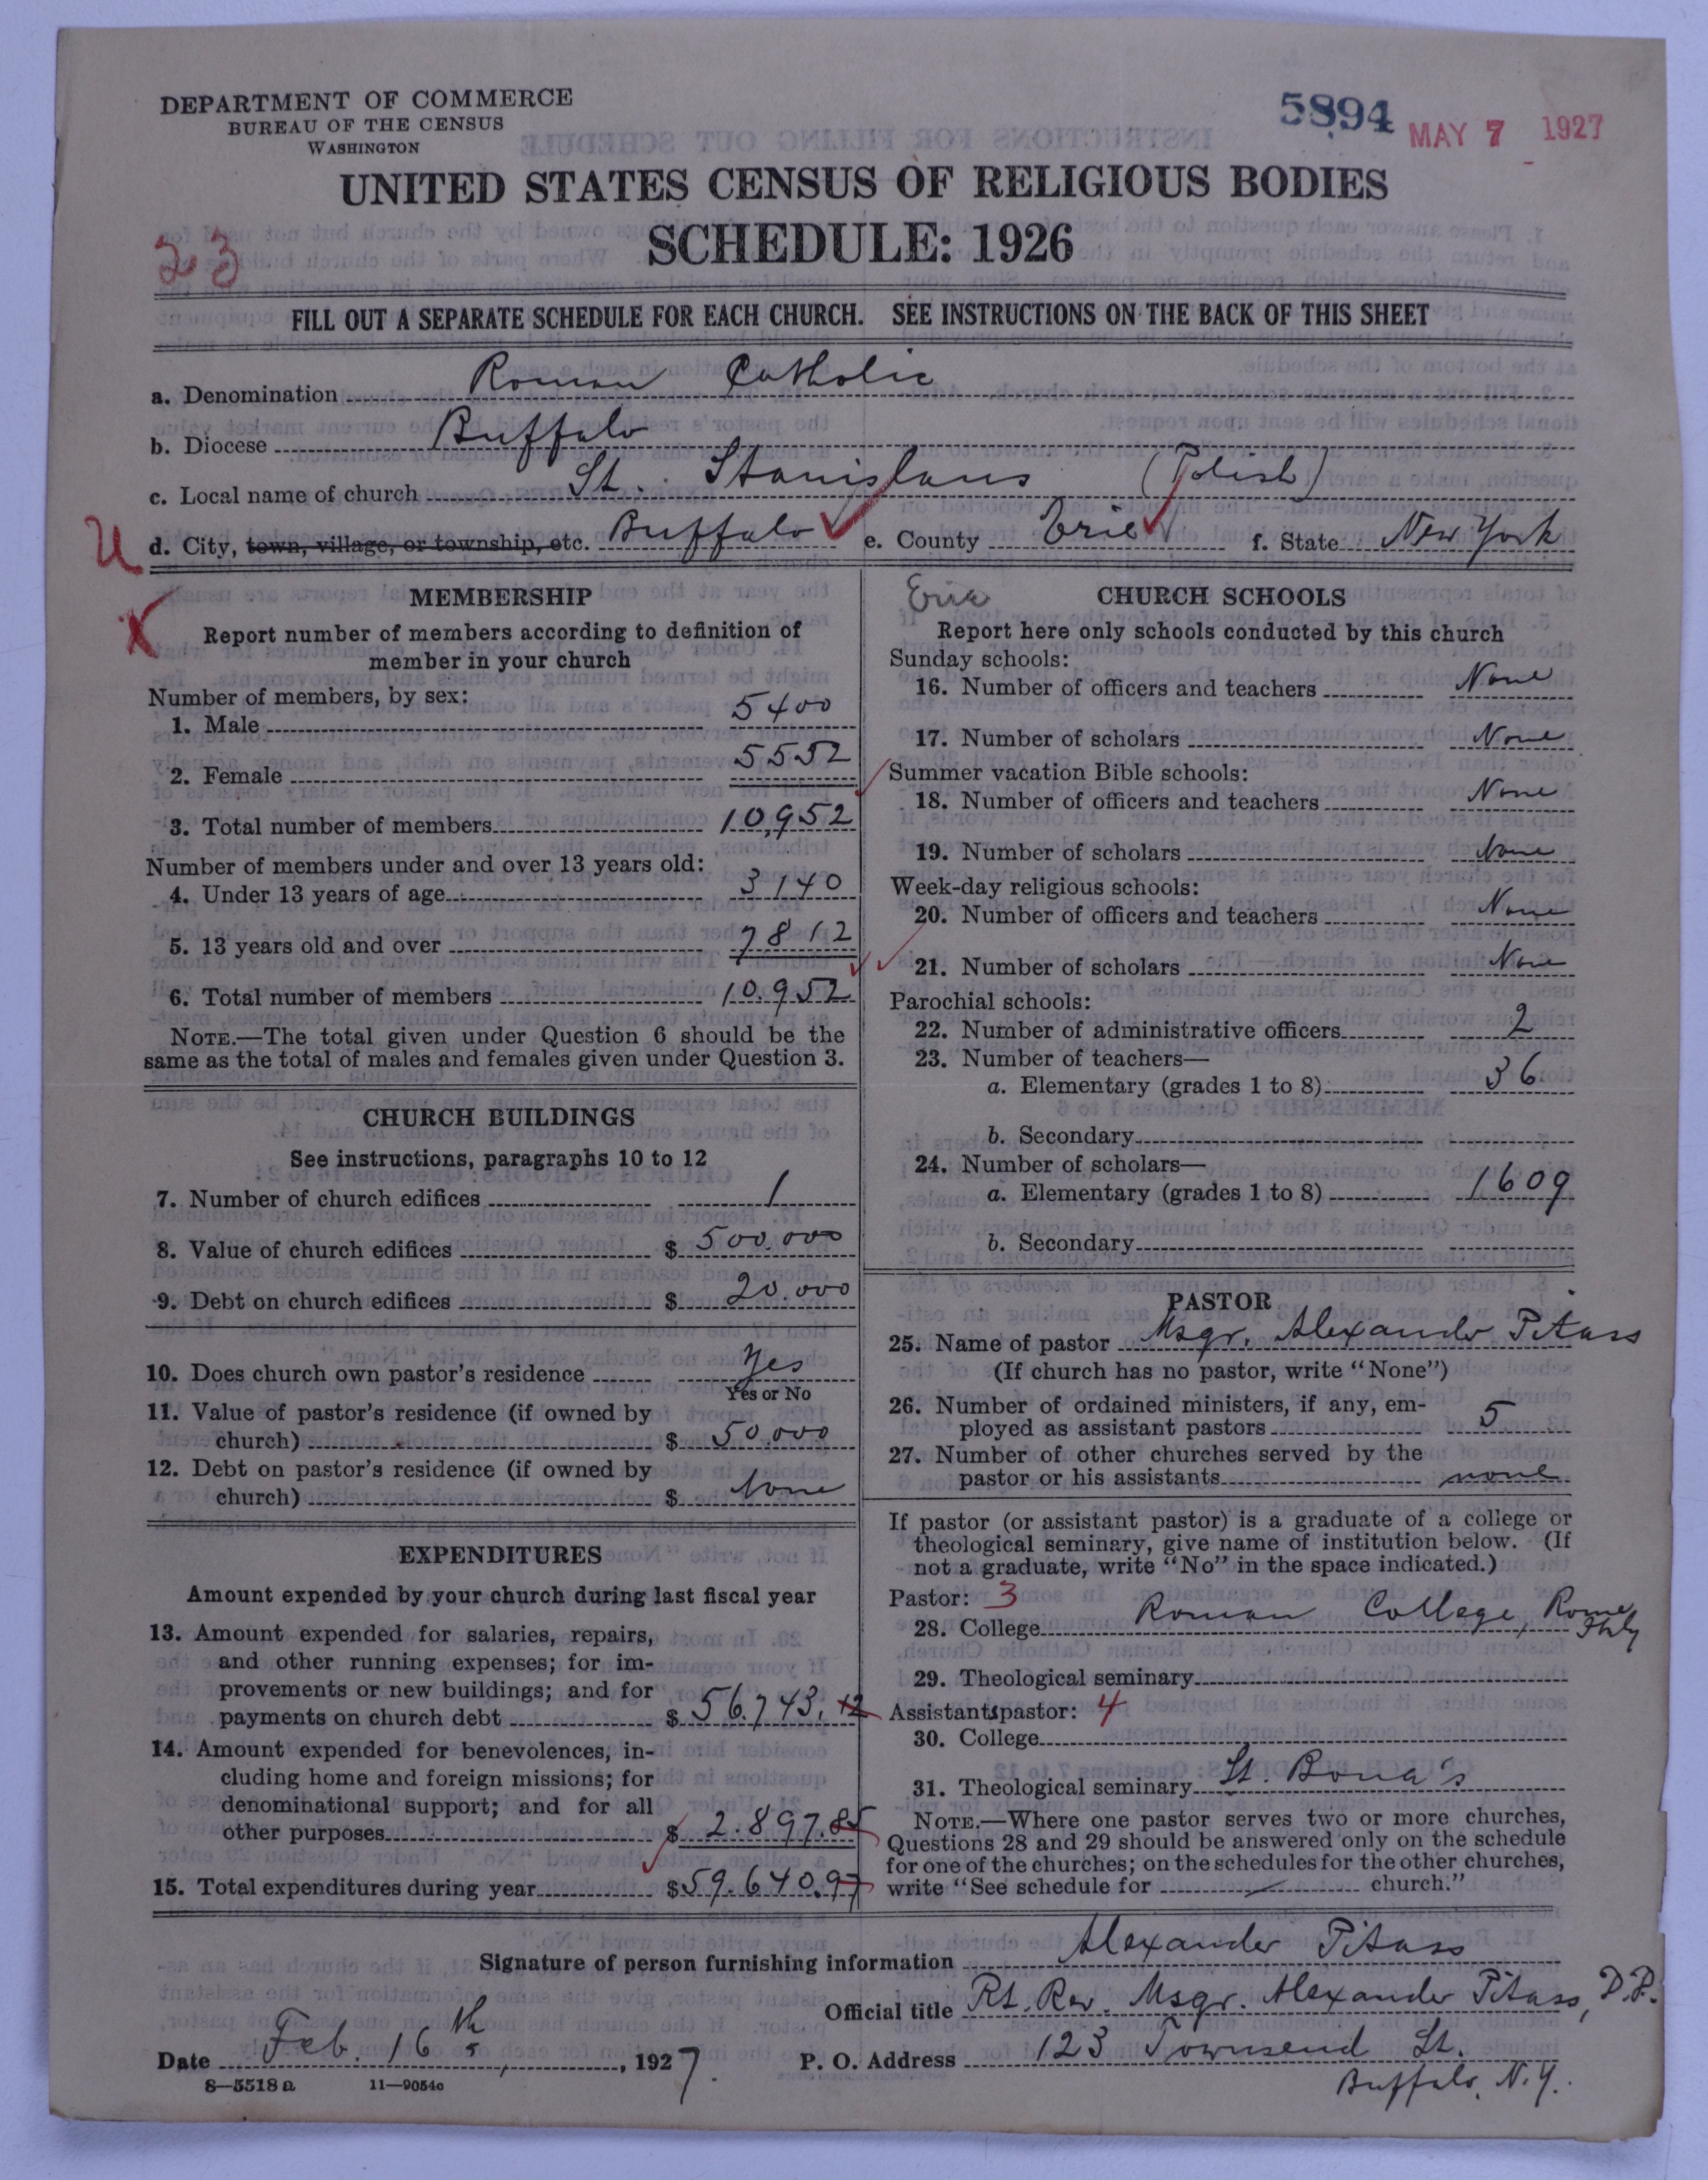 DEPARTMENT OF COMMERCE
BUREAU OF THE CENSUS
WASHINGTON
5894
MAY 7 1927
UNITED STATES CENSUS OF RELIGIOUS BODIES
SCHEDULE: 1926
23
FILL OUT A SEPARATE SCHEDULE FOR EACH CHURCH. SEE INSTRUCTIONS ON THE BACK OF THIS SHEET
a. Denomination Roman Catholic
b. Diocese Buffalo
c. Local name of church St. Stanislaus (Polish)
U d. City, town, village, or township, etc. Buffalo e. County Erie f. State New York
X
MEMBERSHIP
Report number of members according to definition of
member in your church
Number of members, by sex:
1. Male 5400
2. Female 5552
3. Total number of members 10,952
Number of members under and over 13 years old:
4. Under 13 years of age 3140
5. 13 years old and over 7812
6. Total number of members 10.952
NOTE.—The total given under Question 6 should be the
same as the total of males and females given under Question 3.
CHURCH BUILDINGS
See instructions, paragraphs 10 to 12
7. Number of church edifices 1
8. Value of church edifices $ 500.000
9. Debt on church edifices $ 20.000
10. Does church own pastor's residence Yes
Yes or No
11. Value of pastor's residence (if owned by
church) $ 50.000
12. Debt on pastor's residence (if owned by
church) $ None
EXPENDITURES
Amount expended by your church during last fiscal year
13. Amount expended for salaries, repairs,
and other running expenses; for im-
provements or new buildings; and for
payments on church debt $ 56.743.12
14. Amount expended for benevolences, in-
cluding home and foreign missions; for
denominational support; and for all
other purposes $ 2.897.85
15. Total expenditures during year $ 59.640.97
Erie
CHURCH SCHOOLS
Report here only schools conducted by this church
Sunday schools:
16. Number of officers and teachers None
17. Number of scholars None
Summer vacation Bible schools:
18. Number of officers and teachers None
19. Number of scholars None
Week-day religious schools:
20. Number of officers and teachers None
21. Number of scholars None
Parochial schools:
22. Number of administrative officers 2
23. Number of teachers—
a. Elementary (grades 1 to 8) 36
b. Secondary
24. Number of scholars—
a. Elementary (grades 1 to 8) 1609
b. Secondary
PASTOR
25. Name of pastor Msgr. Alexander Pitass
(If church has no pastor, write "None")
26. Number of ordained ministers, if any, em-
ployed as assistant pastors 5
27. Number of other churches served by the
pastor or his assistants none
If pastor (or assistant pastor) is a graduate of a college or
theological seminary, give name of institution below. (If
not a graduate, write "No" in the space indicated.)
Pastor: 3
28. College Roman College, Rome
Italy
29. Theological seminary
Assistants pastor: 4
30. College
31. Theological seminary St. Bona's
NOTE.—Where one pastor serves two or more churches,
Questions 28 and 29 should be answered only on the schedule
for one of the churches; on the schedules for the other churches,
write "See schedule for church."
Signature of person furnishing information Alexander Pitass
Official title Rt. Rev. Msgr. Alexander Pitass, D.P.
Date Feb. 16th, 1927.
P. O. Address 123 Townsend St.
Buffalo, N.Y.
8—5518a 11—9054c